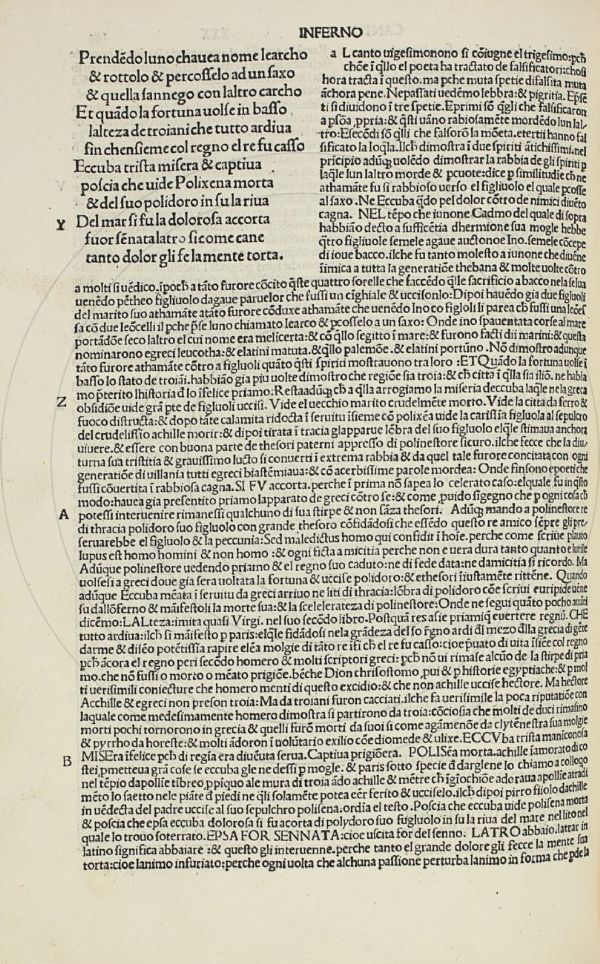 INFERNO
Prendēdo luno chauea nome learcho
& rottolo & percosselo ad un saxo
& quella sannego con laltro carcho
Et quādo la fortuna uolse in basso
lalteza de troiani che tutto ardiua
si n chensieme col regno el re fu casso
Eccuba trista misera & captiua
poscia che uide Polixena morta
& del suo polidoro in su la riua
Y Del mar si fu la dolorosa accorta
fuor sēnata latro si come cane
tanto dolor gli fe la mente torta.
a L canto uigesimonono si cōiugne el trigesimo: pch
che ī qllo el poeta ha tractato de falsificatori: chosi
hora tracta ī questo. ma pche muta spetie di falsita muta
āchora pene. Ne passati uedemo lebbra: & pigritia.
ti si diuidono ī tre spetie. E primi sō qgli che falsificaron
a psōa, ppria: & qsti uāno rabiosamēte mordēdo lun lal-
tro: E secōdi sō qlli che falsorō la mōeta. e tertii hanno fal
sificato la loqla. Ilch dimostra ī due spiriti ātichissimi. nel
pricipio adūq uolēdo dimostrar la rabbia de gli spiriti p
laqle lun laltro morde & pcuote: dice p similitudie ch ne
athamāte fu sī rabbioso uerso el figliuolo el quale pcosse
al saxo. Ne Eccuba qdo pel dolor cōtro de nimici diuēne
cagna. NEL tēpo che iunone. Cadmo del quale di sopra
habbiāo decto a sufficētia dhermione sua mogle hebbe
qtro figliuole semele agaue auctonoe Ino. semele cōcepe
di ioue bacco. ilche fu tanto molesto a iunone che diuēne
īimica a tutta la generatiōe thebana & molte uolte cōtro
a molti si uēdico. īpoch a tāto furore cōcito qste quattro sorelle che faccēdo qlle sacrificio a bacco nella selua
uenēdo pētheo figluolo dagaue paruelor che fussi un cīghiale & uccisonlo: Dipoi hauēdo gia due figluoli
del marito suo athamāte atāto furore cōduxe athamāte che uenēdo Ino co figloli li parea ch fussi una leōes
sa cō due leōcelli il pche pse luno chiamato learco & pcosselo a un saxo: Onde ino spauentata corse al mare
portādōne seco laltro el cui nome era melicerta: & cō qllo segitto ī mare: & furono facti dii marini: & questa
nominarono egreci leucotha: & elatini matuta. & qllo palemōe. & elatini portūno. Nō dimostro adunque
tāto furore athamāte cōtro a figluoli quāto qsti spiriti mostrauono tra loro: ET Quādo la fortuna uolse ī
basso lo stato de troiāi. habbiāo gia piu uolte dimostro che regiōe sia troia: & ch citta ī qlla sia ilō. ne habia
mo pterito lhistoria dlo īfelice priamo: Resta adūq ch a qlla arrogiamo la miseria deccuba laqle ne la greca
Z obsidiōe uide grā pte de figluoli uccisi. Vide el uecchio marito crudelmēte morto. Vide la citta da ferro &
fuoco distructa: & dopo tāte calamita ridocta ī seruitu īsieme cō polixēa uide la carissīa figluola al sepulcro
del crudelissīo achille morir: & dipoi tirata ī tracia glapparue lōbra del suo figluolo elqle stimaua anchora
uiuere. & essere con buona parte de thesori paterni appresso di polinestore sicuro. ilche fecce che la diu-
turna sua tristitia & grauissimo lucto si conuerti ī extrema rabbia & da quel tale furore concitata con ogni
generatiōe di uillania tutti egreci biastēmiaua: & cō acerbissime parole mordea: Onde finsono e poeti che
fussi cōuertita ī rabbiosa cagna. SI FV accorta. perche ī prima nō sapea lo celerato caso: elquale fu in qsto
modo: hauea gia presentito priamo lapparato de greci cōtro se: & come, puido sigegno che p ogni cosa ch
A potessi interuenire rimanessi qualchuno di sua stirpe & non sāza thesori. Adūq mando a polinestore re
di thracia polidoro suo figluolo con grande thesoro cōfidādosi che essēdo questo re amico sēpre gli pre
seruarebbe el figluolo & la peccunia: Sed maledictus homo qui confidit ī hoīe. perche come scriue plauto
lupus est homo homini & non homo: & ogni ficta amicitia perche non e uera dura tanto quanto e lutile
Adūque polinestore uedendo priamo & el regno suo caduto: ne di fede data: ne damicitia si ricordo. Ma
uolsesi a greci doue gia sera uoltata la fortuna & uccise polidoro: & ethesori īiustamēte rittēne. Quando
adūque Eccuba mēata ī seruitu da greci arriuo ne liti di thracia: lōbra di polidoro cōe scriui euripide uēne
su dallōferno & māifestoli la morte sua: & la sceleratea di polinestore: Onde ne segui quāto pocho auāti
dicēmo: LALteza: imita quasi Virgi. nel suo secōdo libro. Postquā res asie priamiq euertere regnū. CHE
tutto ardiua: ilch si māifesto p paris: elqle fidādosi nela grādeza del so rgno ardi dī mezo dlla grecia di gēte
darme & disēo potētissīa rapire elēa moglie di tāto re iti ch el re fu casso: cioe puato di uita īsieme col regno
pch ācora el regno peri secōdo homero & molti scriptori greci: pch nō ui rimase alcūo de la stirpe di pria
mo. che nō fussi o morto o mēato prigiōe. bēche Dion chrisostomo, pui & p historie egyptiache: & p mol
ti uerisimili coniecture che homero menti di questo excidio: & che non achille uccise hectore. Ma hectore
Acchille & egreci non preson troia: Ma da troiani furon cacciati. ilche fa uerisimile la poca riputatiōe con
laquale come medesimamente homero dimostra si partirono da troia: cōciosia che molti de duci rimasino
morti pochi tornorono in grecia & quelli furō morti da suoi si come agamēnōe da clytēnestra sua moglie
& pyrrho da horeste: & molti ādoron ī uolūtario exilio cōe diomede & ulixe. ECCVba trista maniconola
B MISEra īfelice pch di regia era diuēuta serua. Captiua prigiōera. POLISēa morta. achille īamorato di co
stei, pmetteua grā cose se eccuba gle ne dessi p mogle. & paris sotto specie d darglene lo chiamo a colloqo
nel tēpio dapollie tībreo, ppiquo ale mura di troia ādo achille & mētre ch īgiochiōe adoraua apollie atradi
mēto lo saetto nele piāte d piedi ne qli solamēte potea eēr ferito & ucciselo. ilch dipoi pirro fiiolo dachille
in uēdecta del padre uccise al suo sepulchro polisena. ordīa el testo. Poscia che eccuba uide polisena morta
& poscia che epsa eccuba dolorosa si fu acorta di polydoro suo figluolo in su la riua del mare nel lito nel
quale lo trouo soterrato. EPSA FOR SENNATA: cioe uscita for del senno. LATRO abbaio. latrar in
latino significa abbaiare: & questo gli interuenne. perche tanto el grande dolore gli fecce la mente sua
torta: cioe lanimo infuriato: perche ogni uolta che alchuna passione perturba lanimo in forma che pde la